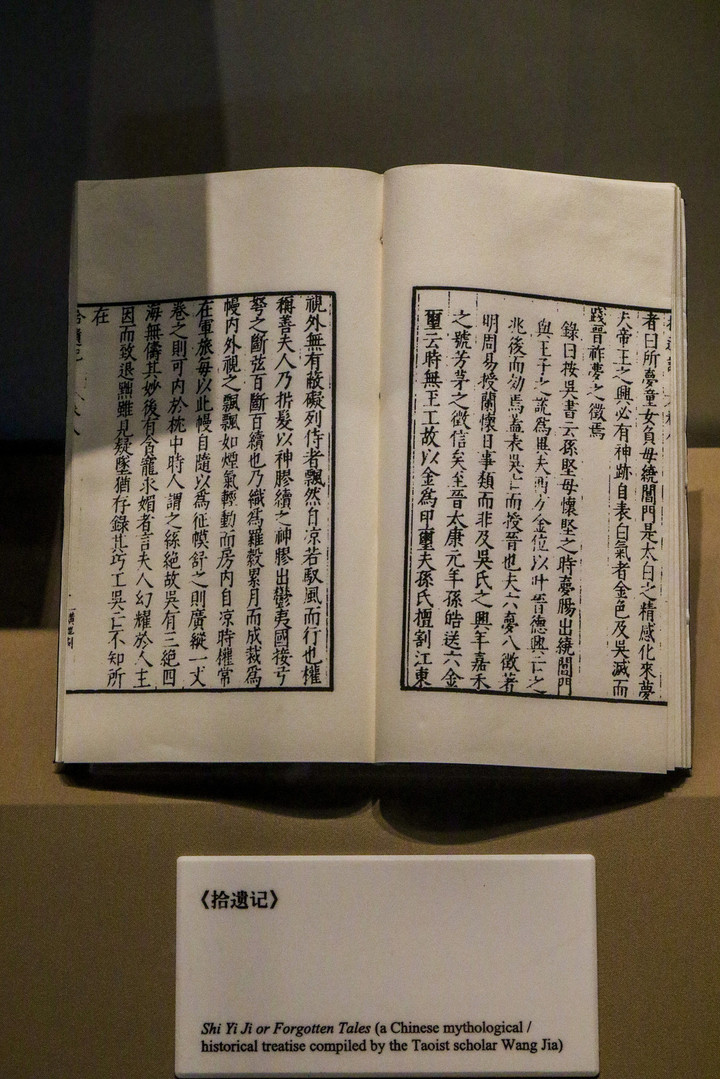 者曰所夢童女負母繞閶門是太白之精感化來夢
夫帝王之興必有神跡自表白氣者金色及吳滅而
踐晉祚夢之徵焉
錄曰按吳書云孫堅母懷堅之時夢腸出繞閶門
與王子之
兆後而効焉蓋表吳亡而授晉也夫六夢八徵著
明周易授蘭懷日事類而非及吳氏之興年嘉禾
之號芳茅之徵信矣至晉太康元年孫皓送六金
璽云時無玉工故以金為印璽夫孫氏擅割江東
視外無有蔽礙列侍者飄然自凉若馭風而行也權
稱善夫人乃拆髮以神膠續之神膠出鬱夷國接弓
弩之斷弦百斷百續也乃織為羅縠累月而成裁為
幔內外視之飄飄如煙氣輕動而房內自凉時權常
在軍旅每以此幔自隨以為征幙舒之則廣縱一丈
卷之則可內於枕中時人謂之絲絕故吳有三絕四
海無儔其妙後有貪寵求媚者言夫人幻耀於人主
因而致退黜雖見疑墜猶存錄其巧工吳亡不知所
在
《拾遗记》
Shi Yi Ji or Forgotten Tales (a Chinese mythological /
historical treatise compiled by the Taoist scholar Wang Jia)